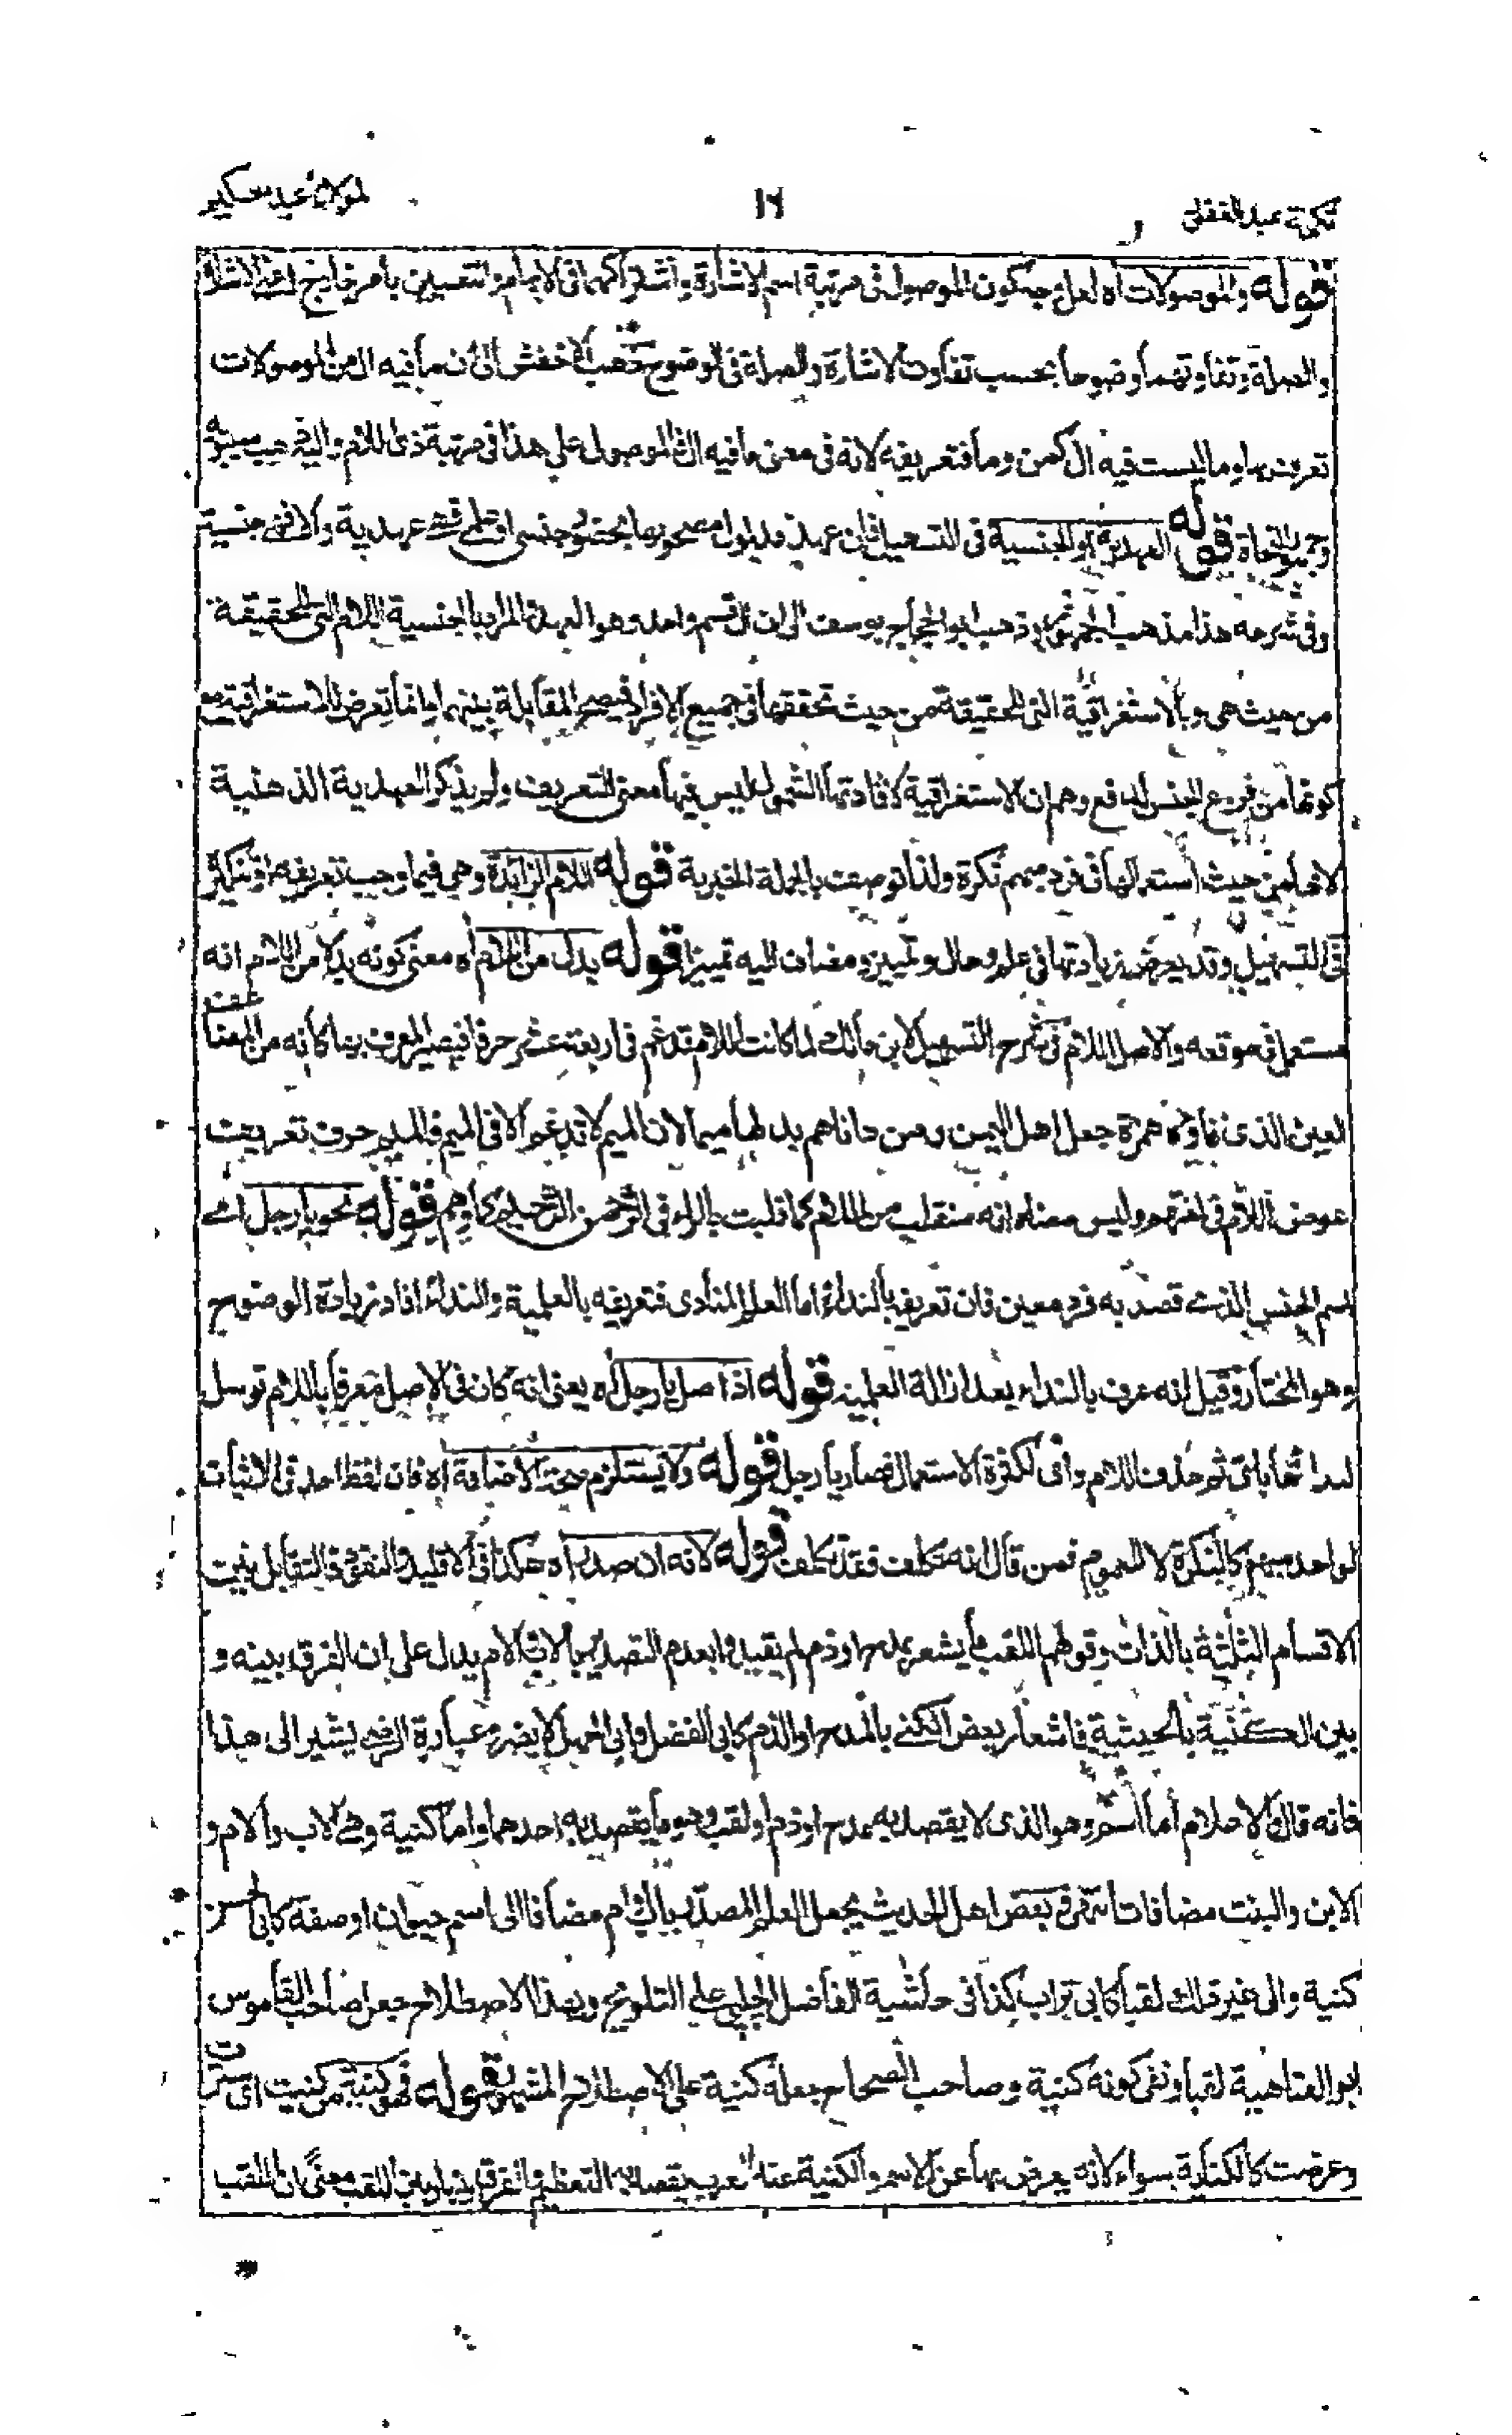 تكملة عبد الغفور
١٦
لمولانا عبد الحكيم
قوله والموصولات اه لعل وجه كون الموصول فى مرتبة اسم الاشارة واشتراكهما فى الابهام والتعيين بامر خارج اعنى الاشارة
والصلة وتفاوتهما وضوحا بحسب تفاوت الاشارة والصلة فى الوضوح ذهب الاخفش الى ان ما فيه ال من الموصولات
تعرف بها وما ليست فيه ال كمن وما فتعريفه لانه فى معنى ما فيه ال فالموصول على هذا فى مرتبة ذى اللام واليه ذهب سيبويه
وجمهور النحاة قوله العهدية او الجنسية فى التسهيل فان عهد مدلول مصحوبها بحضور حسى او علمى فهى عهدية والا فهى جنسية
وفى شرحه هذا مذهب الجمهور وذهب ابو الحجاج يوسف الى ان ال قسم واحد وهو العهد المراد بالجنسية اللام التى للحقيقة
من حيث هى وبالاستغراقية التى للحقيقة من حيث تحققها فى جميع الافراد فيصح المقابلة بينهما وانما تعرض للاستغراقية مع
كونها من فروع الجنس لدفع وهم ان الاستغراقية لافادتها الشمول ليس فيها معنى التعريف ولم يذكر العهدية الذهنية
لانها من حيث استعمالها فى فرد مبهم نكرة ولذا توصف بالجملة الخبرية قوله اللام الزائدة وهى فيما وجب تعريفه او تنكيره
فى التسهيل وقد يعرض زيادتها فى علم وحال وتمييز ومضاف اليه تمييز قوله بدل من اللام اه معنى كونه بدلا من اللام انه
مستعمل فى موقعه والاصل اللام فى شرح التسهيل لابن مالك لما كانت اللام تدغم فى اربعة عشر حرفا فيصير المعرف بها كانه من المضاعف
العين الذى فاؤه همزة جعل اهل اليمن ومن داناهم بدلها ميما لان الميم لا تدغم الا فى الميم فالميم حرف تعريف
عوض اللام فى لغتهم وليس معناه انه منقلب من اللام كما قلبت بالراء فى الرحمن الرحيم كما وهم قوله نحو يا رجل اى
اسم الجنس الذى قصد به فرد معين فان تعريفه بالنداء اما العلم المنادى فتعريفه بالعلمية والنداء افاد زيادة الوضوح
وهو المختار وقيل انه عرف بالنداء بعد ازالة العلمية قوله اذ اصل يا رجل اه يعنى انه كان فى الاصل معرفا باللام توسل
لندائها باى ثم حذف اللام واى لكثرة الاستعمال فصار يا رجل قوله ولا يستلزم صحة الاضافة اه فان لفظ احد فى الاثبات
لواحد مبهم كالنكرة لا للعموم فمن قال انه تكلف فقد تكلف قوله لانه ان صدر اه هكذا فى الاقليد والنفى فالتقابل بين
الاقسام الثلثة بالذات وقولهم اللقب ما يشعر بمدح او ذم لم يقيدوا بعدم التصدير بالاب والام يدل على ان الفرق بينه و
بين الكنية بالحيثية فاشعار بعض الكنى بالمدح او الذم كابى الفضل وابى الجهل لا يضر وعبارة الرضى يشير الى هذا
فانه قال الاعلام اما اسم وهو الذى لا يقصد به مدح او ذم او لقب وهو ما يقصد به احدهما واما كنية وهى الاب والام و
الابن والبنت مضافات ثم فى بعض اهل الحديث يجعل العلم المصدر باب او ام مضافا الى اسم حيوان او صفة كابى الحسن
كنية والى غير ذلك لقبا كابى تراب كذا فى حاشية الفاضل الچلپى على التلويح وبهذا الاصطلاح جعل صاحب القاموس
ابو العتاهية لقبا ونفى كونه كنية وصاحب الصحاح جعله كنية على الاصطلاح المشهور قوله فهو كنية من كنيت اى سترت
وعرضت كالكناية سواء لانه يعرض بها عن الاسم والكنية عند العرب يقصد بها التعظيم والفرق بينها وبين اللقب معنى ان اللقب